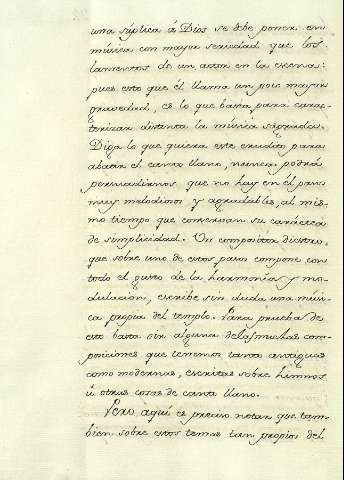 una súplica á Dios se debe poner en
música con mayor seriedad que los
lamentos de un actor en la escena:
pues esto que él llama un poco mayor
gravedad, es lo que basta para carac-
terizar distinta la música sagrada.
Diga lo que quiera este erudito para
abatir el canto llano, nunca podrá
persuadirnos que no hay en él pasos
muy melodiosos y agradables, al mis-
mo tiempo que conservan su carácter
de simplicidad. Un compositor diestro,
que sobre uno de estos pasos compone con
todo el gusto de la harmonía y mo-
dulación, escribe sin duda una músi-
ca propia del templo. Para prueba de
esto basta oir alguna de las muchas com-
posiciones que tenemos tanto antiguas
como modernas, escritas sobre himnos
ú otras cosas de canto llano.
Pero aquí es preciso notar que tam-
bien sobre estos temas tan propios del